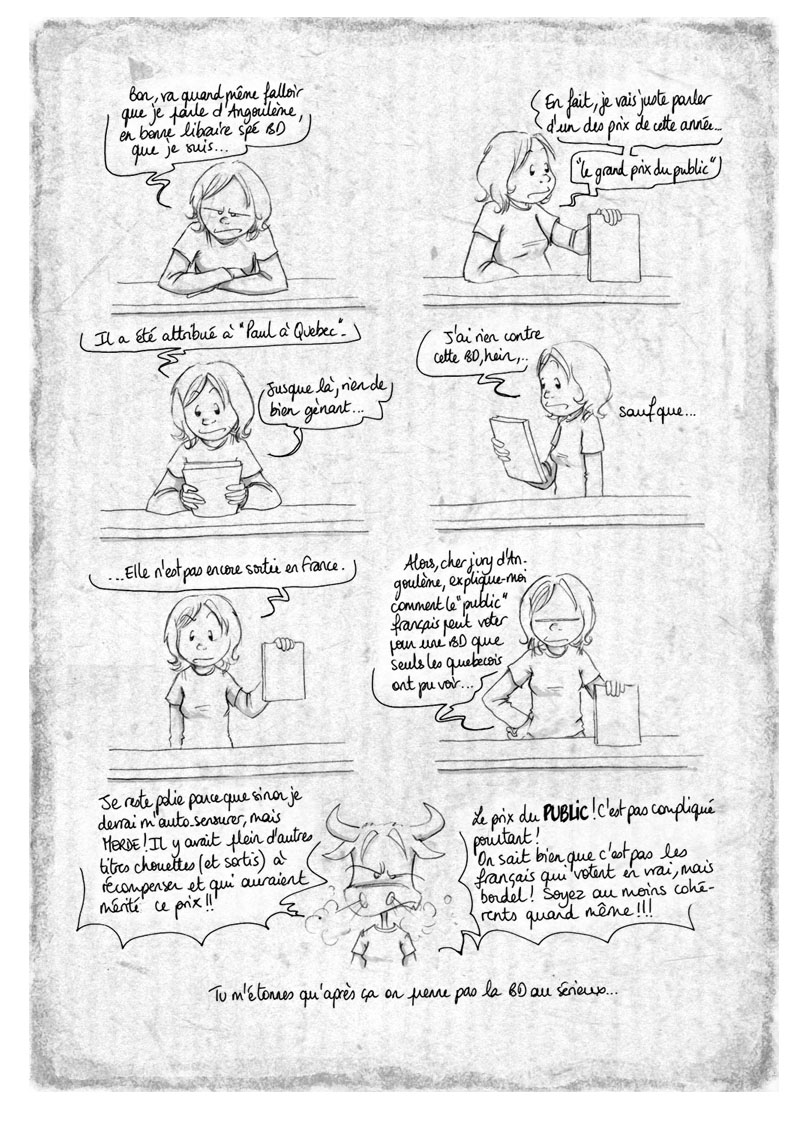 Bon, va quand même falloir
que je parle d'Angoulème,
en bonne libraire spé BD
que je suis...
En fait, je vais juste parler
d'un des prix de cette année...
"le grand prix du public"
Il a été attribué à "Paul à Quebec".
Jusque là, rien de
bien gènant...
J'ai rien contre
cette BD, hein,..
sauf que...
...Elle n'est pas encore sortie en France.
Alors, cher jury d'An-
goulème, explique-moi
comment le "public"
français peut voter
pour une BD que
seuls les quebecois
ont pu voir...
Je reste polie parce que sinon je
devrai m'auto-sensurer, mais
MERDE! Il y avait plein d'autres
titres chouettes (et sortis) à
récompenser et qui auraient
mérité ce prix!!
Le prix du PUBLIC! C'est pas compliqué
pourtant!
On sait bien que c'est pas les
français qui votent en vrai, mais
bordel! Soyez au moins cohé-
rents quand même!!!
Tu m'étonnes qu'après ça on prenne pas la BD au sérieux...